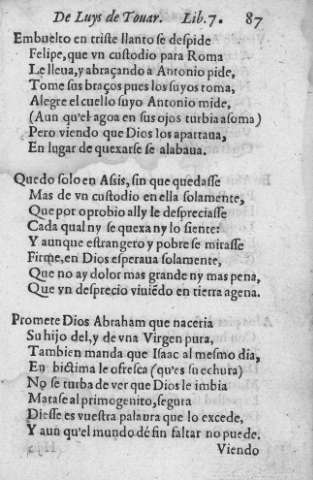 De Luys de Touar. Lib. 7. 87
Embuelto en triste llanto se despide
Felipe, que vn custodio para Roma
Le lleua, y abraçando a Antonio pide,
Tome sus braços pues los suyos toma,
Alegre el cuello suyo Antonio mide,
(Aun qu'el agoa en sus ojos turbia asoma)
Pero viendo que Dios los apartaua,
En lugar de quexarse se alabaua.
Quedo solo en Asis, sin que quedasse
Mas de vn custodio en ella solamente,
Que por oprobio ally le despreciasse
Cada qual ny se quexa ny lo siente:
Y aunque estrangero y pobre se mirasse
Firme, en Dios esperaua solamente,
Que no ay dolor mas grande ny mas pena,
Que vn desprecio viuiẽdo en tierra agena.
Promete Dios Abraham que naceria
Su hijo del, y de vna Virgen pura,
Tambien manda que Isaac al mesmo dia,
En bictima le ofresca (qu'es su echura)
No se turba de ver que Dios le imbia
Matase al primogenito, segura
Diesse es vuestra palaura que lo excede,
Y aun qu'el mundo dé fin faltar no puede.
Viendo